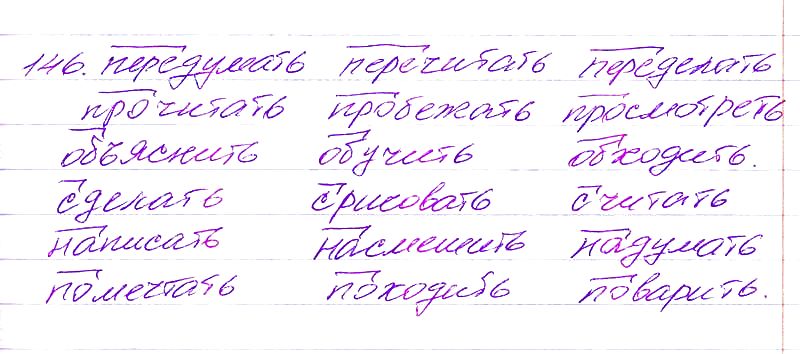 146. передумать перечитать переделать
прочитать пробежать просмотреть
объяснить обучить обходить.
сделать срисовать считать
написать насмешить надумать
помечтать походить поварить.